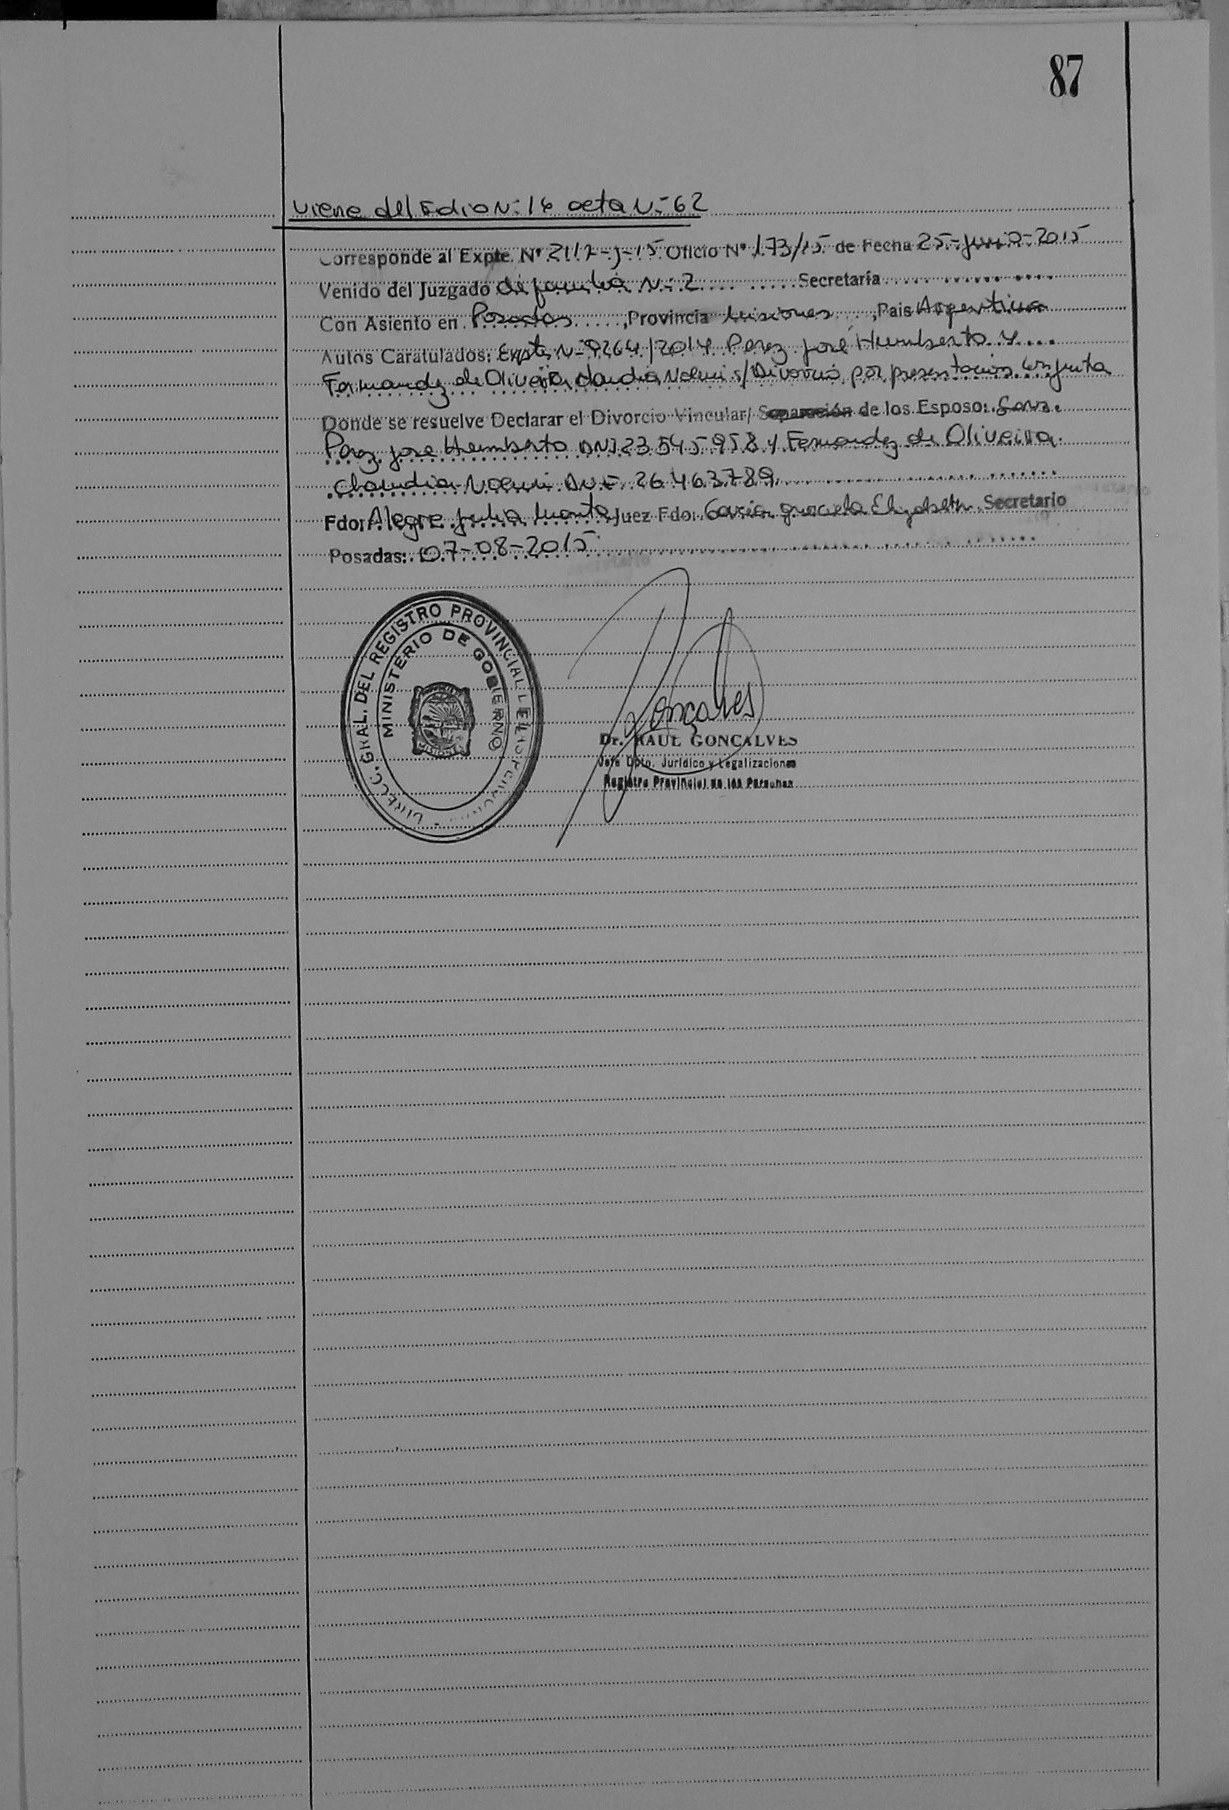 87
viene del Folio N: 16 acta N:- 62
Corresponde al Expte. Nº 2112-J-15 Oficio Nº 173/15 de Fecha 25-junio-2015
Venido del Juzgado de familia N:- 2 Secretaría
Con Asiento en Posadas, Provincia Misiones, Pais Argentina
Autos Caratulados: Expte N:- 9264/2014 Perez José Humberto y
Fernandez de Oliveira Claudia Noemi s/Divorcio por presentacion conjunta
Donde se resuelve Declarar el Divorcio Vincular/ Separación de los Esposo:
Perez José Humberto DNI 23.545.958 y Fernandez de Oliveira
Claudia Noemi DNI 26.463.789
Fdo: Alegre Julia Marta Juez Fdo: Graciela Elizabeth Secretario
Posadas: 07-08-2015
DIRECC. GRAL. DEL REGISTRO PROVINCIAL DE LAS PERSONAS
MINISTERIO DE GOBIERNO
Goncalves
Dr. RAUL GONCALVES
Jefe Dpto. Jurídico y Legalizaciones
Registro Provincial de las Personas